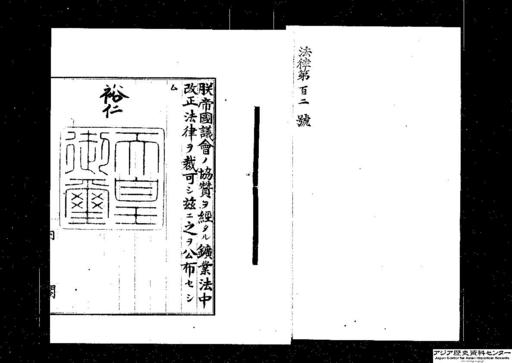 法律第百二號
朕帝國議會ノ協贊ヲ經タル鑛業法中
改正法律ヲ裁可シ茲ニ之ヲ公布セシ
ム
裕仁
天皇
御璽
内閣
アジア歴史資料センター
Japan Center for Asian Historical Records